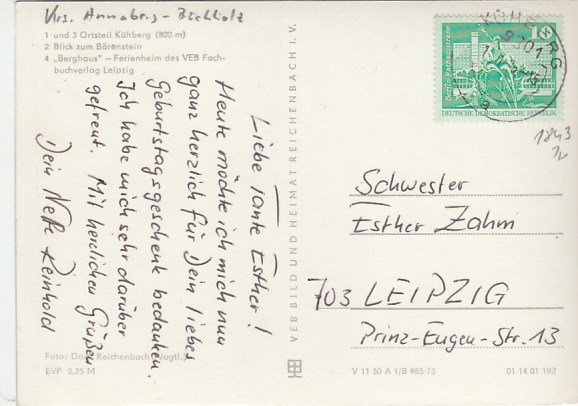 Krs. Annaberg-Buchholz
1 und 3 Ortsteil Kühberg (800 m)
2 Blick zum Bärenstein
4 „Berghaus“ – Ferienheim des VEB Fach-
buchverlag Leipzig
Liebe Tante Esther!
Heute möchte ich mich nun
ganz herzlich für Dein liebes
Geburtstagsgeschenk bedanken.
Ich habe mich sehr darüber
gefreut. Mit herzlichen Grüßen
Dein Neffe Reinhold
Foto: Reichenbach (Vogtl.)
EVP 0,25 M
VEB BILD UND HEIMAT REICHENBACH I. V.
KÜHBERG
9301
DEUTSCHE DEMOKRATISCHE REPUBLIK
10
1843
Schwester
Esther Zahm
703 LEIPZIG
Prinz-Eugen-Str. 13
V 11 50 A 1/B 985 73
01 14 01 192